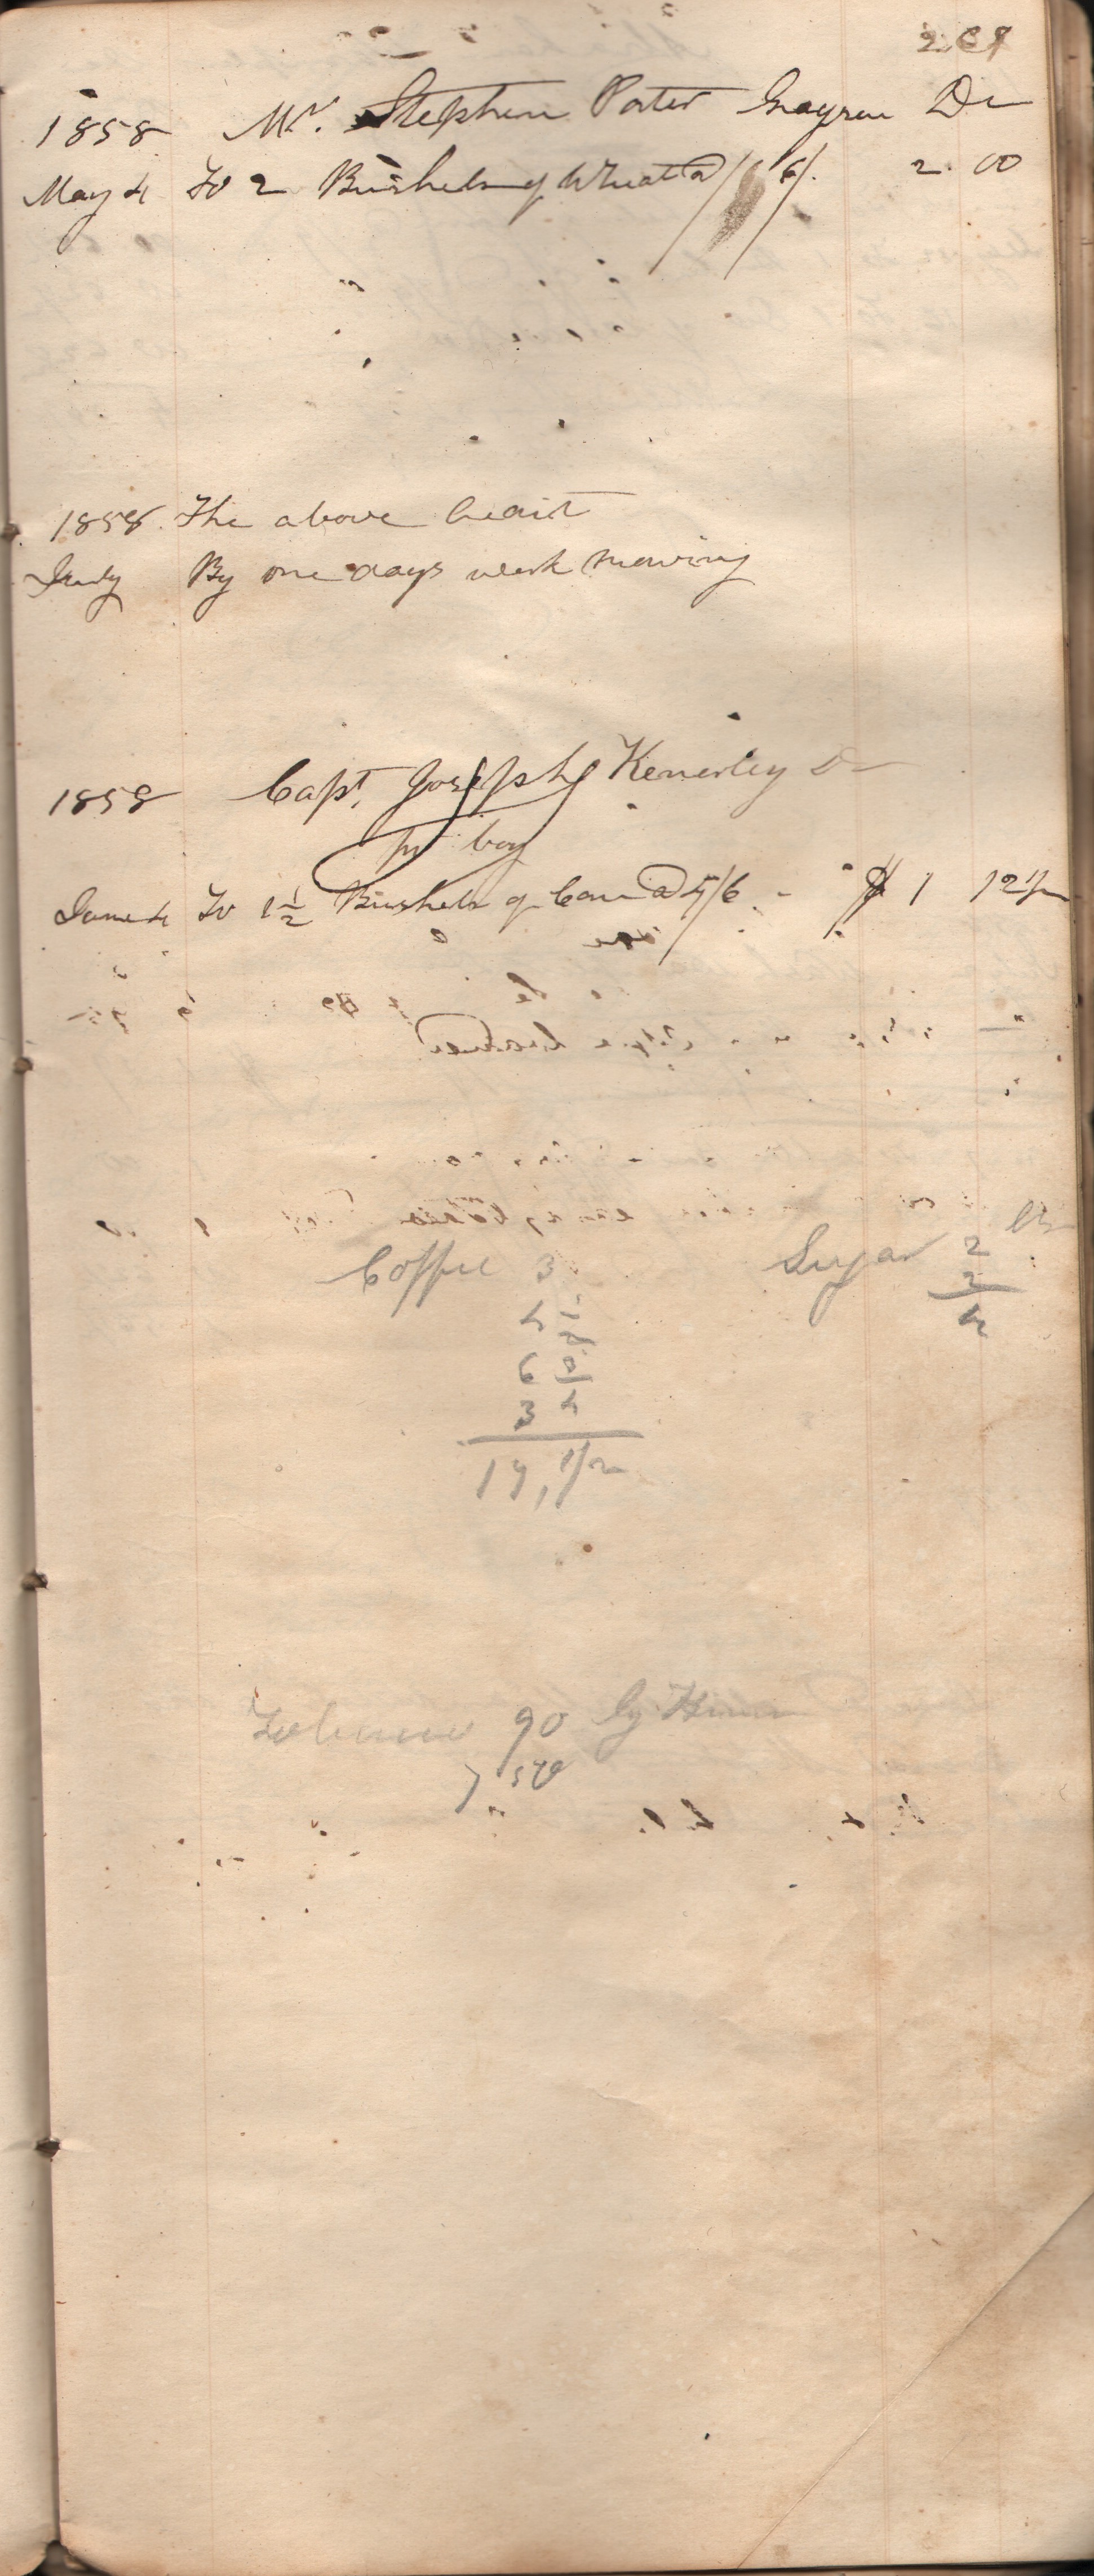 1858 Mr. Stephen Porter Dr
May 4 To 2 Bushels of Wheat @ 6/. 2 00
1858 The above Credit
July By one days work mowing
1858 Capt. Joseph Kenerley Dr
pr boy
June 4 To 1 1/2 Bushels of Corn @ 4/6 - $ 1 12 1/2
Coffee 3 Sugar 2 lbs
2
4
6
3
17, 1/2
Tobacco 90 by Hiram
7 50